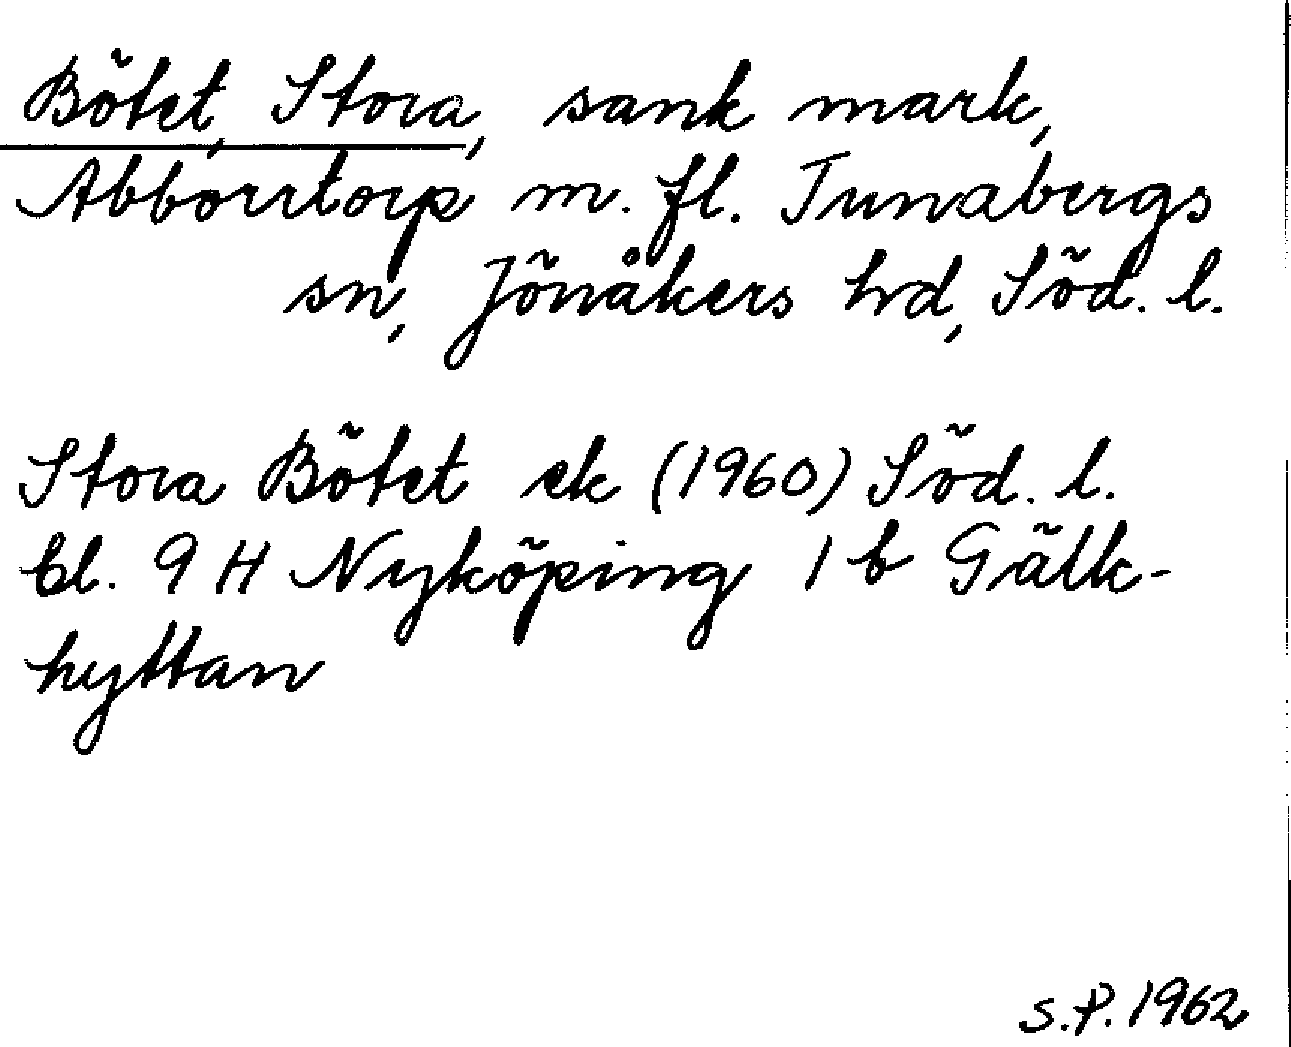 Bötet, Stora, sank mark,
Abborrtorp m. fl. Tunabergs
sn, Jönåkers hd, Söd. l.
Stora Bötet ek (1960) Söd. l.
bl. 9 H Nyköping 1 b Gälk-
hyttan
S.P. 1962